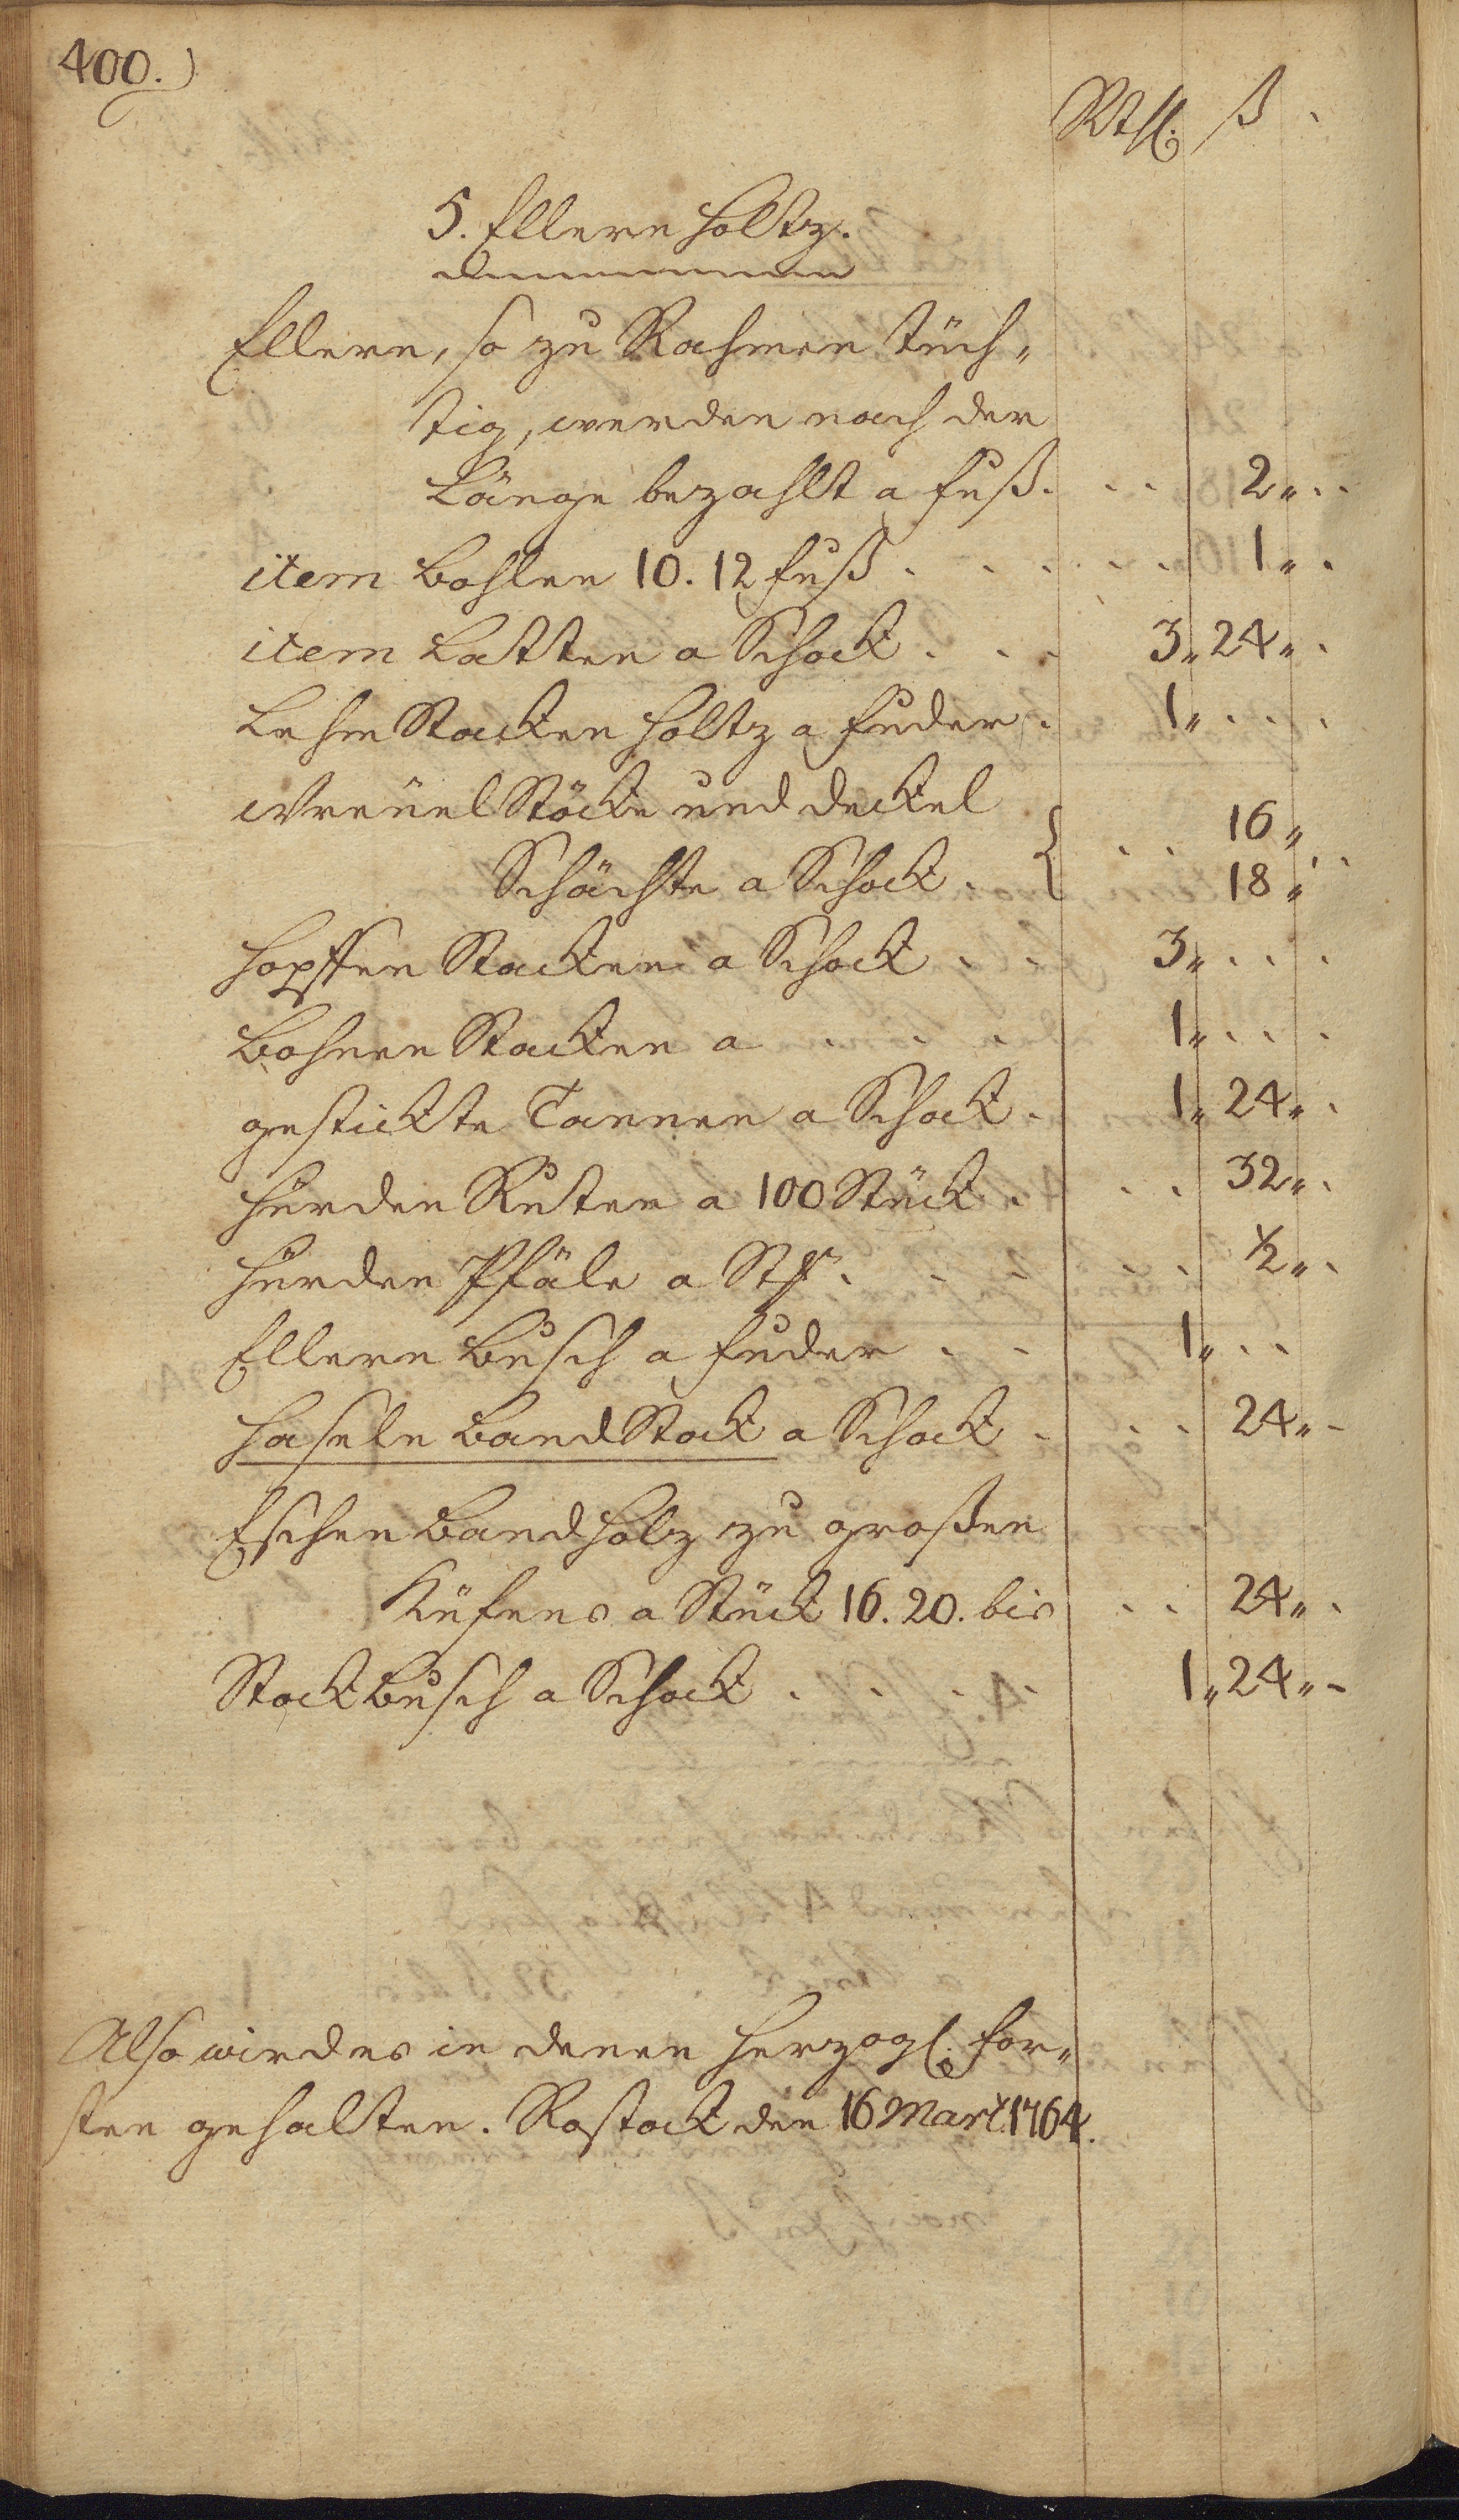 400.)
Rthl. ß
5. Ellern Holtz.
Ellern, so zu Rahmen tüch„
tig, werden nach der
Länge bezahlt a Fuß. . . 2„ . .
item Bohlen 10. 12 Fuß . . . . . 1„ .
item Latten a Schock . . . 3„ 24„ .
Lehm Stacken Holtz a Fuder . 1„ . . .
Stöcke und deckel . . 16„
Schächte a Schock . { 18„ . .
Hopffen Stacken a Schock . . 3„ . . .
Bohnen Stacken a . . . 1„ . . .
gestickte Tannen a Schock . 1„ 24„ .
Hürden Ruten a 100 Stück . . . 32„ .
Hürden Pfäle a St. . . . . . ½„ .
Ellern Busch a Fuder . . 1„ . .
Haseln Band Stock a Schock . . . 24„ -
Eschen Band Holz zu großen
Küfens a Stück 16. 20. bis . . 24„ .
Stock Busch a Schock . . . . 1„ 24„ -
Also wird es in denen Herzogl. For„
sten gehalten. Rostock den 16 Mart. 1764.